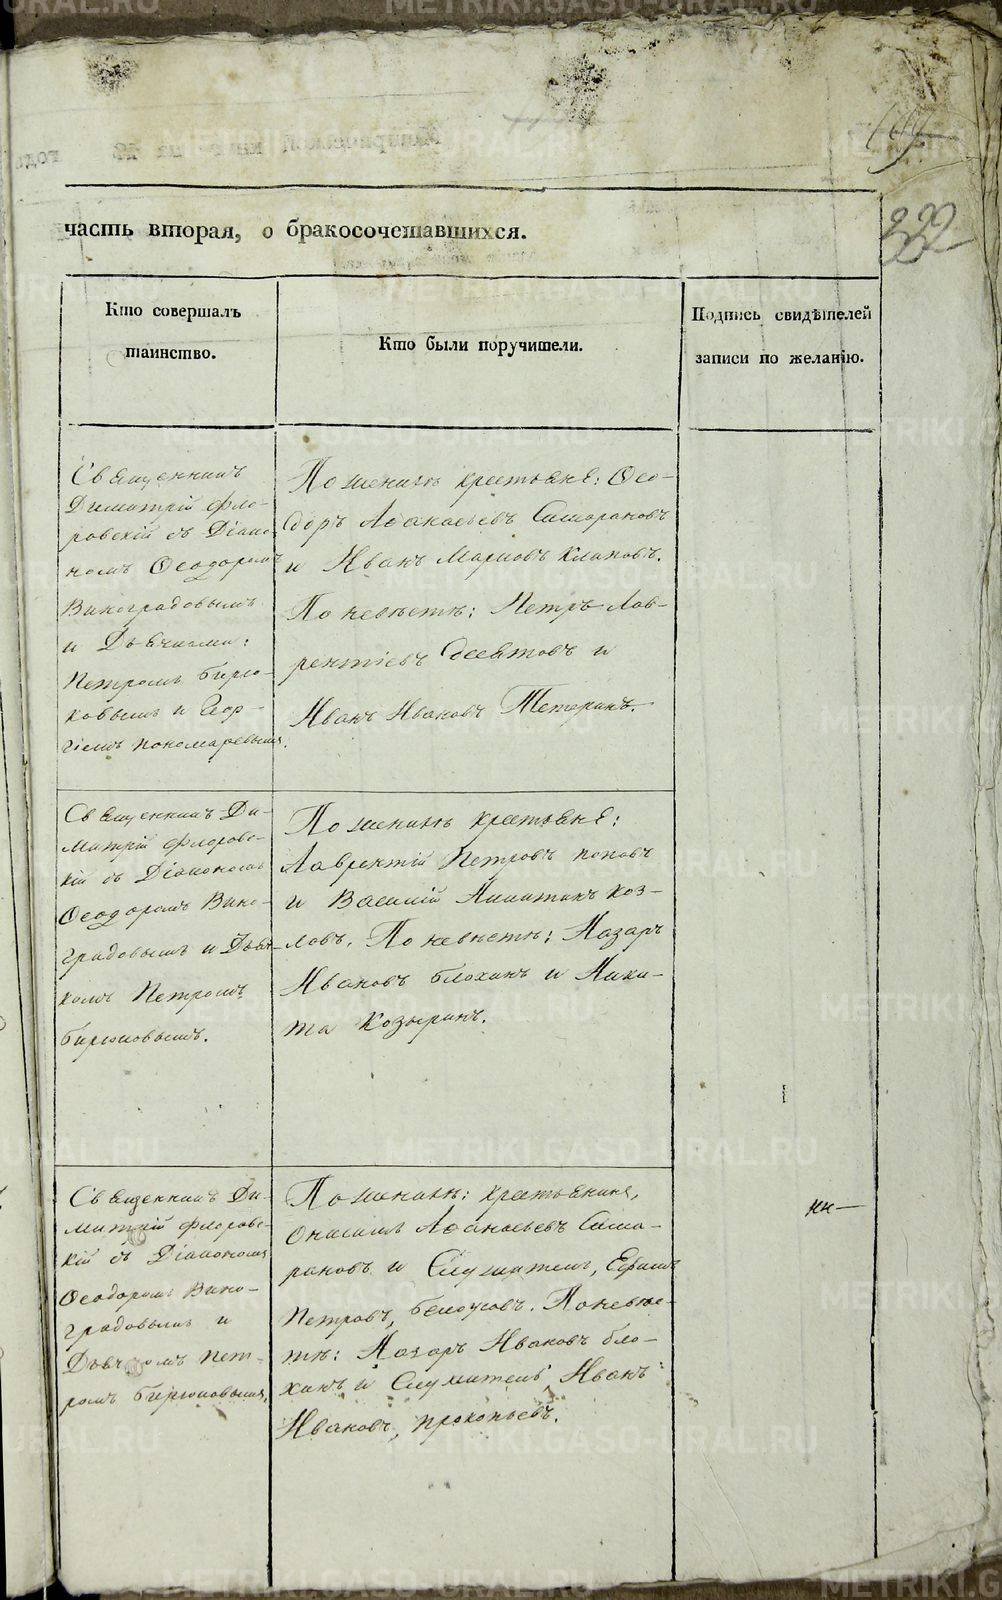 часть вторая, о бракосочетавшихся.
322
Кто совершалъ
таинство.
Кто были поручители.
Подпись свидѣтелей
записи по желанію.
Священникъ
Димитрій Фло-
ровскій съ Діако-
номъ Ѳеодоромъ
Виноградовымъ
и Дьячками:
Петромъ Бирю-
ковымъ и Геор-
гіемъ Пономаревымъ.
По женихѣ крестьяне: Ѳео-
доръ Аѳанасьевъ
и Иванъ Марковъ
По невѣстѣ: Петръ Лав-
рентіевъ и
Иванъ Ивановъ Тетеринъ.
Священникъ Ди-
митрій Флоровс-
кій съ Діакономъ
Ѳеодоромъ Вино-
градовымъ и Дьяч-
комъ Петромъ
Бирюковымъ.
По женихѣ крестьяне:
Лаврентій Петровъ Поповъ
и Василій Никитинъ Коз-
ловъ. По невѣстѣ: Назаръ
Ивановъ Блохинъ и Ники-
та Козыринъ.
Священникъ Ди-
митрій Флоровс-
кій съ Діакономъ
Ѳеодоромъ Вино-
градовымъ и
Дьячкомъ Пет-
ромъ Бирюковымъ.
По женихѣ: крестьянинъ,
Аѳанасьевъ
и Служитель, Ефимъ
Петровъ, Белоусовъ. По невѣс-
тѣ: Назаръ Ивановъ Бло-
хинъ и Служитель, Иванъ
Ивановъ, Прокопьевъ.
METRIKI.GASO-URAL.RU